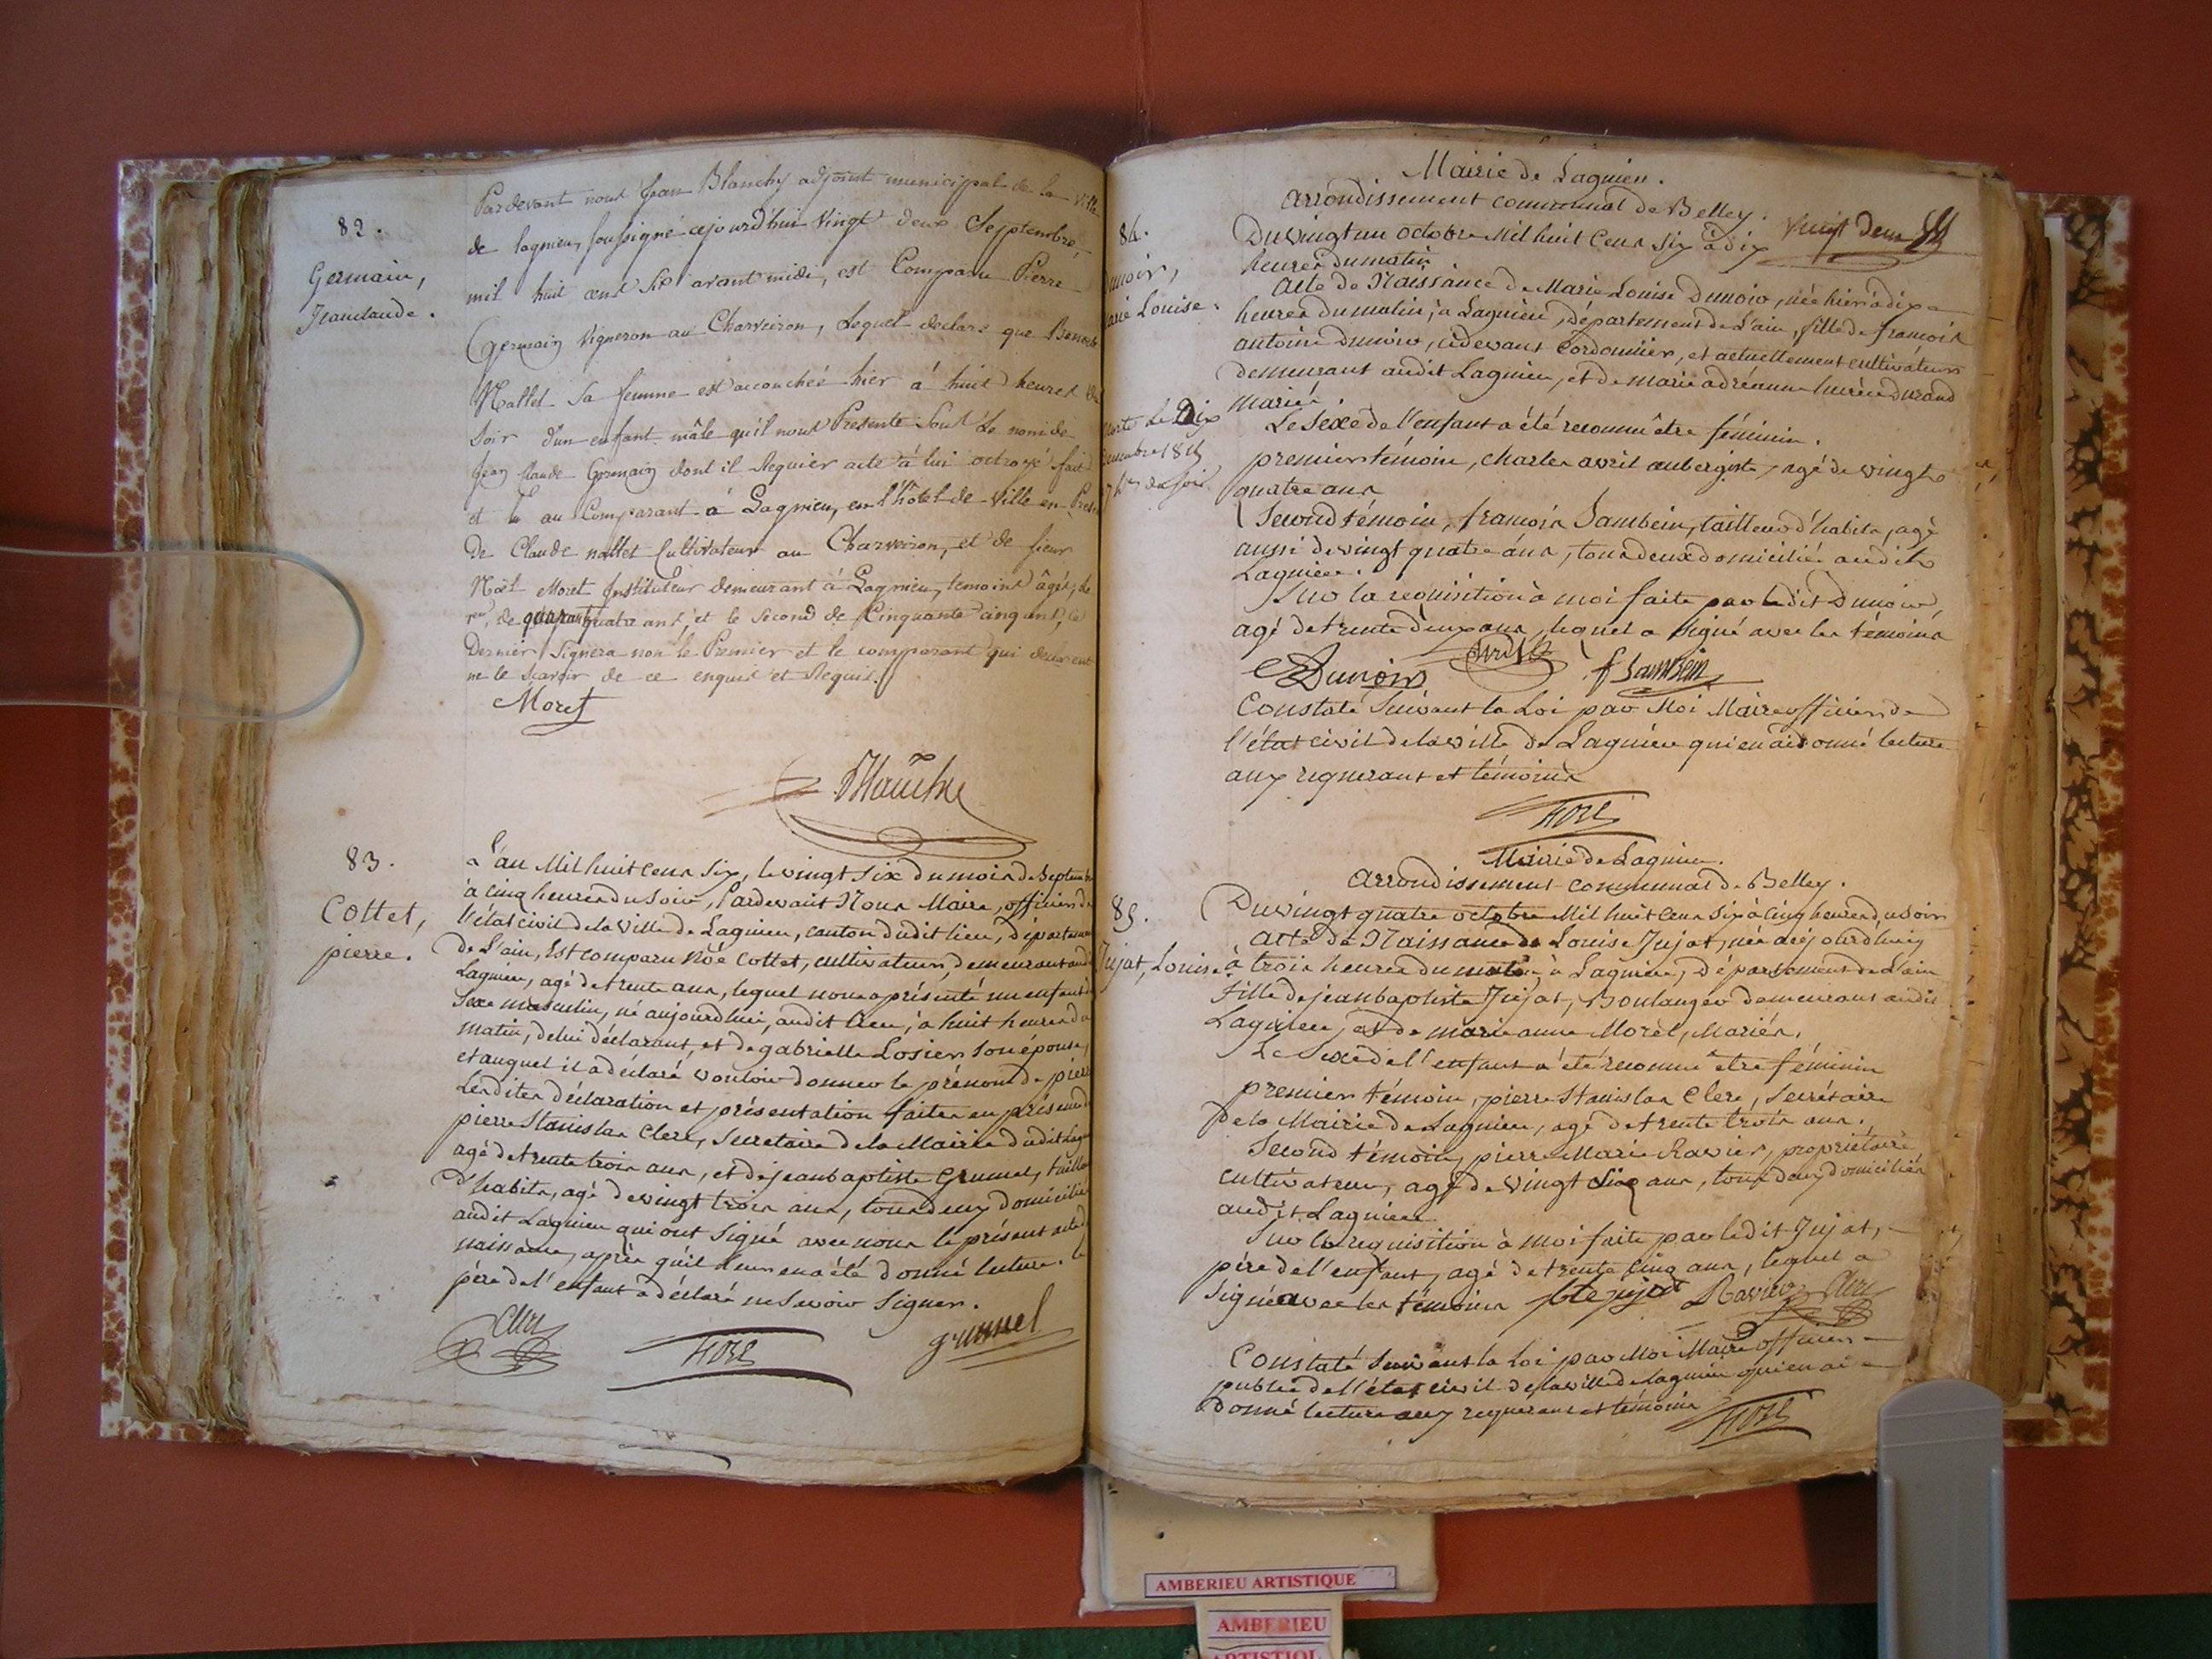 82.
Germain,
Jeanclaude.
Pardevant nous Jean Blanchy adjoint municipal de la ville
de lagnieu, soussigné cejourd'hui vingt deux Septembre,
mil huit cent Six avant midi, est Comparu Pierre
Germain Vigneron au Charveiron, Lequel declare que
Nallet Sa femme est accouchée hier à huit heures du
Soir d'un enfant mâle qu'il nous Presente Sous Le nom de
Jean Claude Germain dont il Requier acte à lui octroyé fait
et lu au Comparant à Lagnieu, en l'hôtel de Ville en
De Claude nallet Cultivateur au Charveiron, et de sieur
Noël Moret Instituteur demeurant à Lagnieu, temoins âgés, le
de quarante quatre ans, et le Second de Cinquante cinq ans, ce
Dernier Signera non le Premier et le comparant qui deux ont
ne le Scavoir de ce enquis et Requis.
Moret
Blanchy
83.
Cottet,
pierre.
L'an Mil huit Cens Six, le vingt Six du mois de Septembre
à cinq heures du Soir, Pardevant Nous Maire, officier de
l'état civil de la Ville de Lagnieu, canton dudit lieu, Département
De L'ain, Est comparu Noé Cottet, cultivateur, demeurant audit
Lagnieu, agé de trente ans, lequel nous a présenté un enfant du
Sexe masculin, né aujourdhui, audit lieu, à huit heures du
matin, de lui déclarant, et de gabrielle Losier Son épouse,
et auquel il a déclaré vouloir donner le prénom de pierre
Lesdites déclaration et présentation faites en présence de
pierre Stanislas Clerc, Secretaire de la Mairie dudit Lagnieu
agé de trente trois ans, et de jean baptiste Grumel, tailleur
d'habits, agé de vingt trois ans, tous deux domiciliés
audit Lagnieu qui ont Signé avec nous le présent acte de
naissance, après qu'il leur en a été donné lecture. le
père de l'enfant a déclaré ne Savoir Signer.
Clerc
grumel
Mairie de Lagnieu.
arrondissement communal de Belley.
84.
Louise.
Du vingt un octobre Mil huit Cens Six à dix
Vingt Deux
heures du matin
acte de Naissance de Marie Louise Dunoir, née hier à dix
heures du matin, à Lagnieu, Département de L'ain, fille de françois
antoine dunoir, cidevant Cordonnier, et actuellement cultivateur
demeurant audit Lagnieu, et de marie durand
Mariés.
Le Sexe de l'enfant a été reconnu être féminin.
premier témoin, charles avril aubergiste, agé de vingt
quatre ans
Second témoin, françois Sambein, tailleur d'habits, agé
aussi de vingt quatre ans, tous deux domicilié audit
Lagnieu.
Sur la requisition à moi faite par ledit Dunoir,
agé de trente deux ans, lequel a Signé avec les témoins
Dunoir
avril
f Sambein
Constaté Suivant la Loi par Moi Maire officier de
l'état civil de la ville de Lagnieu qui en ai donné lecture
aux requerant et témoins
Mairie de Lagnieu.
arrondissement communal de Belley.
85.
Jujat, Louise
Du vingt quatre octobre Mil huit Cens Six à Cinq heures du Soir
acte de Naissance de Louise Jujat, née cejourdhuy
à trois heures du matin à Lagnieu, Département de L'ain
Fille de jean baptiste Jujat, Boulanger demeurant audit
Lagnieu, et de marie anne Morel, Mariés.
Le Sexe de l'enfant a été reconnu être féminin
premier témoin, pierre Stanislas Clerc, Secrétaire
de la Mairie de Lagnieu, agé de trente trois ans.
Second témoin, pierre Marie Ravier, proprietaire
cultivateur, agé de vingt Six ans, tous deux domiciliés
audit Lagnieu
Sur la requisition à moi faite par ledit Jujat,
père de l'enfant, agé de trente Cinq ans, lequel a
Signé avec les témoins
jujat Ravier Clerc
Constaté Suivant la Loi par Moi Maire officier
public de l'état civil de la ville de lagnieu qui en ai
donné lecture aux requerant et témoins
AMBERIEU ARTISTIQUE
AMBERIEU